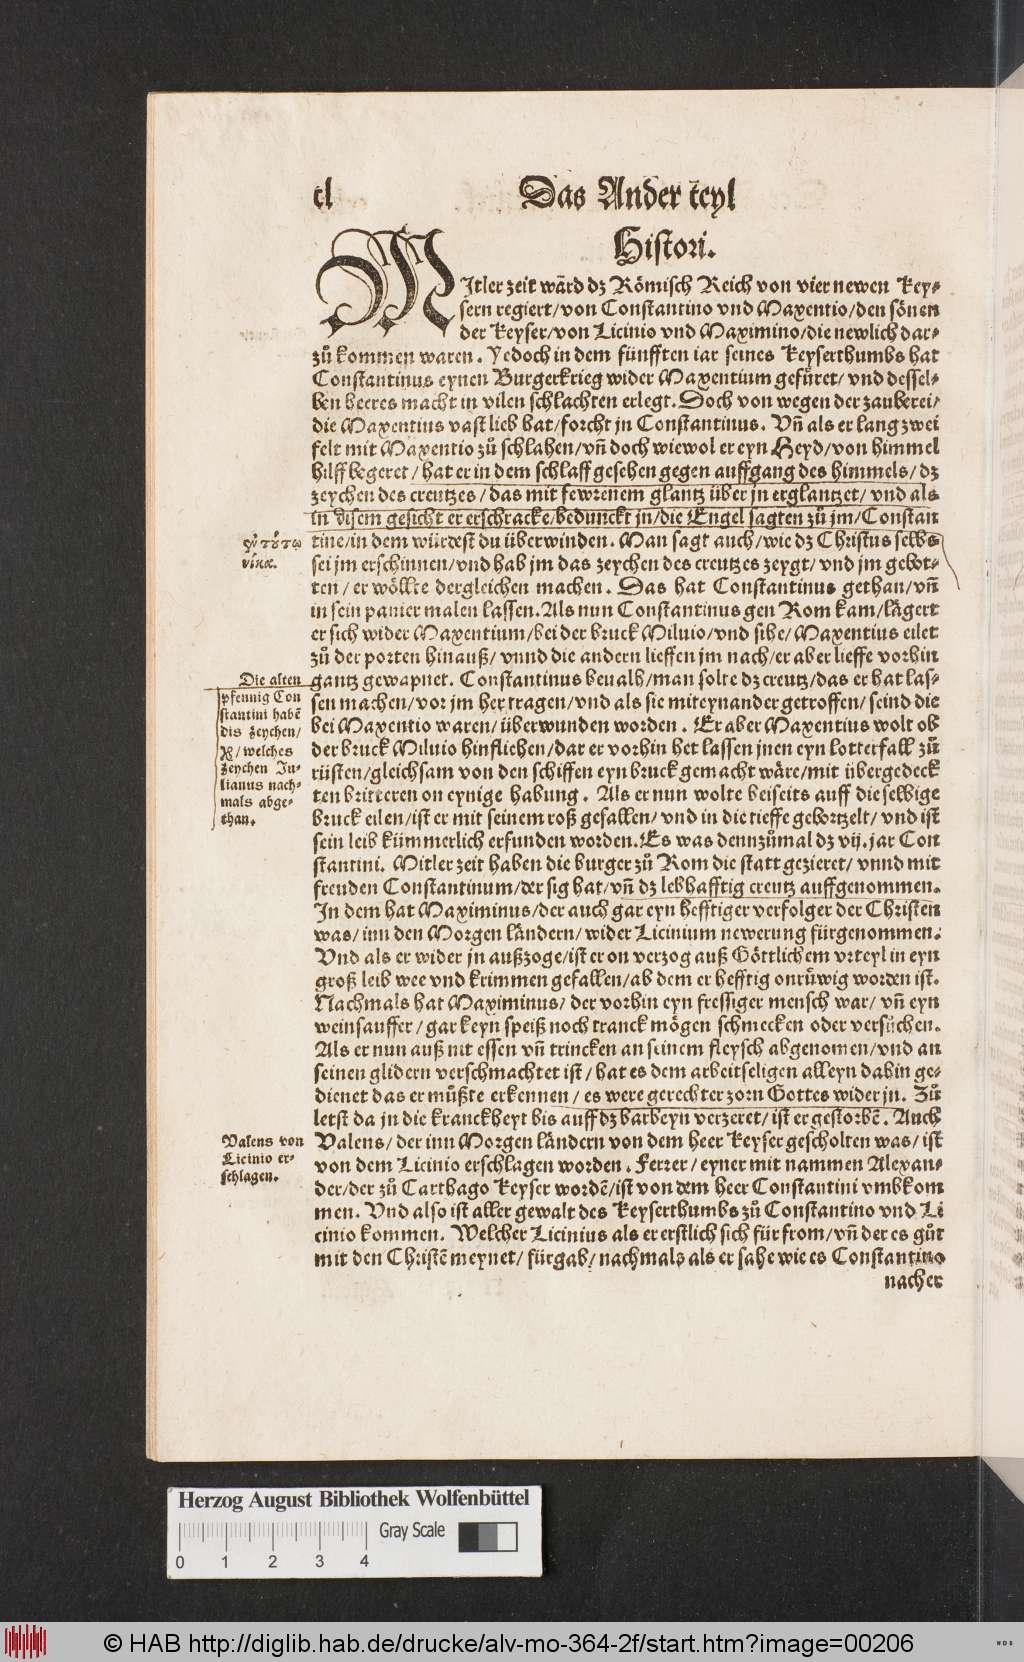 cl
Das Ander teyl
Histori.
MItler zeit wārd dz Römisch Reich von vier newen Key⸗
sern regiert/von Constantino vnd Maxentio/den sönen
der Keyser/von Licinio vnd Maximino/die newlich dar⸗
zů kommen waren. Yedoch in dem fünfften iar seines Keyserthumbs hat
Constantinus eynen Burgerkrieg wider Maxentium gefüret/ vnd dessel⸗
ben heeres macht in vilen schlachten erlegt. Doch von wegen der zauberei/
die Maxentius vast lieb hat/forcht jn Constantinus. Vñ als er lang zwei
felt mit Maxentio zů schlahen/vñ doch wiewol er eyn Heyd/von himmel
hilff begeret/hat er in dem schlaff gesehen gegen auffgang des himmels/dz
zeychen des creutzes/das mit fewrenem glantz über jn erglantzet/vnd als
in disem gesicht er erschracke/bedunckt jn/die Engel sagten zů jm/Constan
ἐν τούτῳ
νίκα.
tine/in dem würdest du überwinden. Man sagt auch/wie dz Christus selbs
sei jm erschinnen/vnd hab jm das zeychen des creutzes zeygt/vnd jm gebot⸗
ten/er wöllte dergleichen machen. Das hat Constantinus gethan/vñ
in sein panier malen lassen. Als nun Constantinus gen Rom kam/lägert
er sich wider Maxentium/bei der bruck Miluio/vnd sihe/Maxentius eilet
zů der porten hinauß/vnnd die andern lieffen jm nach/er aber lieffe vorhin
Die alten
pfennig Con
stantini habē
dis zeychen/
☧/welches
zeychen Ju⸗
lianus nach⸗
mals abge⸗
than.
gantz gewapnet. Constantinus beualh/man solte dz creutz/das er hat las⸗
sen machen/vor jm her tragen/vnd als sie miteynander getroffen/seind die
bei Maxentio waren/überwunden worden. Er aber Maxentius wolt ob
der bruck Miluio hinfliehen/dar er vorhin het lassen jnen eyn lotterfall zů
rüsten/gleichsam von den schiffen eyn bruck gemacht wäre/mit übergedeck
ten britteren on eynige habung. Als er nun wolte beiseits auff die selbige
bruck eilen/ist er mit seinem roß gefallen/vnd in die tieffe gebortzelt/vnd ist
sein leib kümmerlich erfunden worden. Es was dennzůmal dz vij. jar Con
stantini. Mitler zeit haben die burger zů Rom die statt gezieret/vnnd mit
freuden Constantinum/der sig hat/vñ dz lebhafftig creutz auffgenommen.
In dem hat Maximinus/der auch gar eyn hefftiger verfolger der Christen
was/inn den Morgen ländern/wider Licinium newerung fürgenommen.
Vnd als er wider jn außzoge/ist er on verzog auß Göttlichem vrteyl in eyn
groß leib wee vnd krimmen gefallen/ab dem er hefftig onrüwig worden ist.
Nachmals hat Maximinus/der vorhin eyn fressiger mensch war/vñ eyn
weinsauffer/gar keyn speiß noch tranck mögen schmecken oder versůchen.
Als er nun auß nit essen vñ trincken an seinem fleysch abgenomen/vnd an
seinen glidern verschmachtet ist/hat es dem arbeitseligen alleyn dahin ge⸗
dienet das er můßte erkennen/es were gerechter zorn Gottes wider jn. Zů
letst da jn die kranckheyt bis auff dz harbeyn verzeret/ist er gestorbē. Auch
Valens von
Licinio er⸗
schlagen.
Valens/der inn Morgen ländern von dem heer Keyser gescholten was/ist
von dem Licinio erschlagen worden. Ferrer/eyner mit nammen Alexan⸗
der/der zů Carthago Keyser wordē/ist von dem heer Constantini vmbkom
men. Vnd also ist aller gewalt des Keyserthumbs zů Constantino vnd Li
cinio kommen. Welcher Licinius als er erstlich sich für from/vñ der es gůt
mit den Christē meynet/fürgab/nachmals als er sahe wie es Constantino
nacher
Herzog August Bibliothek Wolfenbüttel
Gray Scale
0 1 2 3 4
© HAB http://diglib.hab.de/drucke/alv-mo-364-2f/start.htm?image=00206